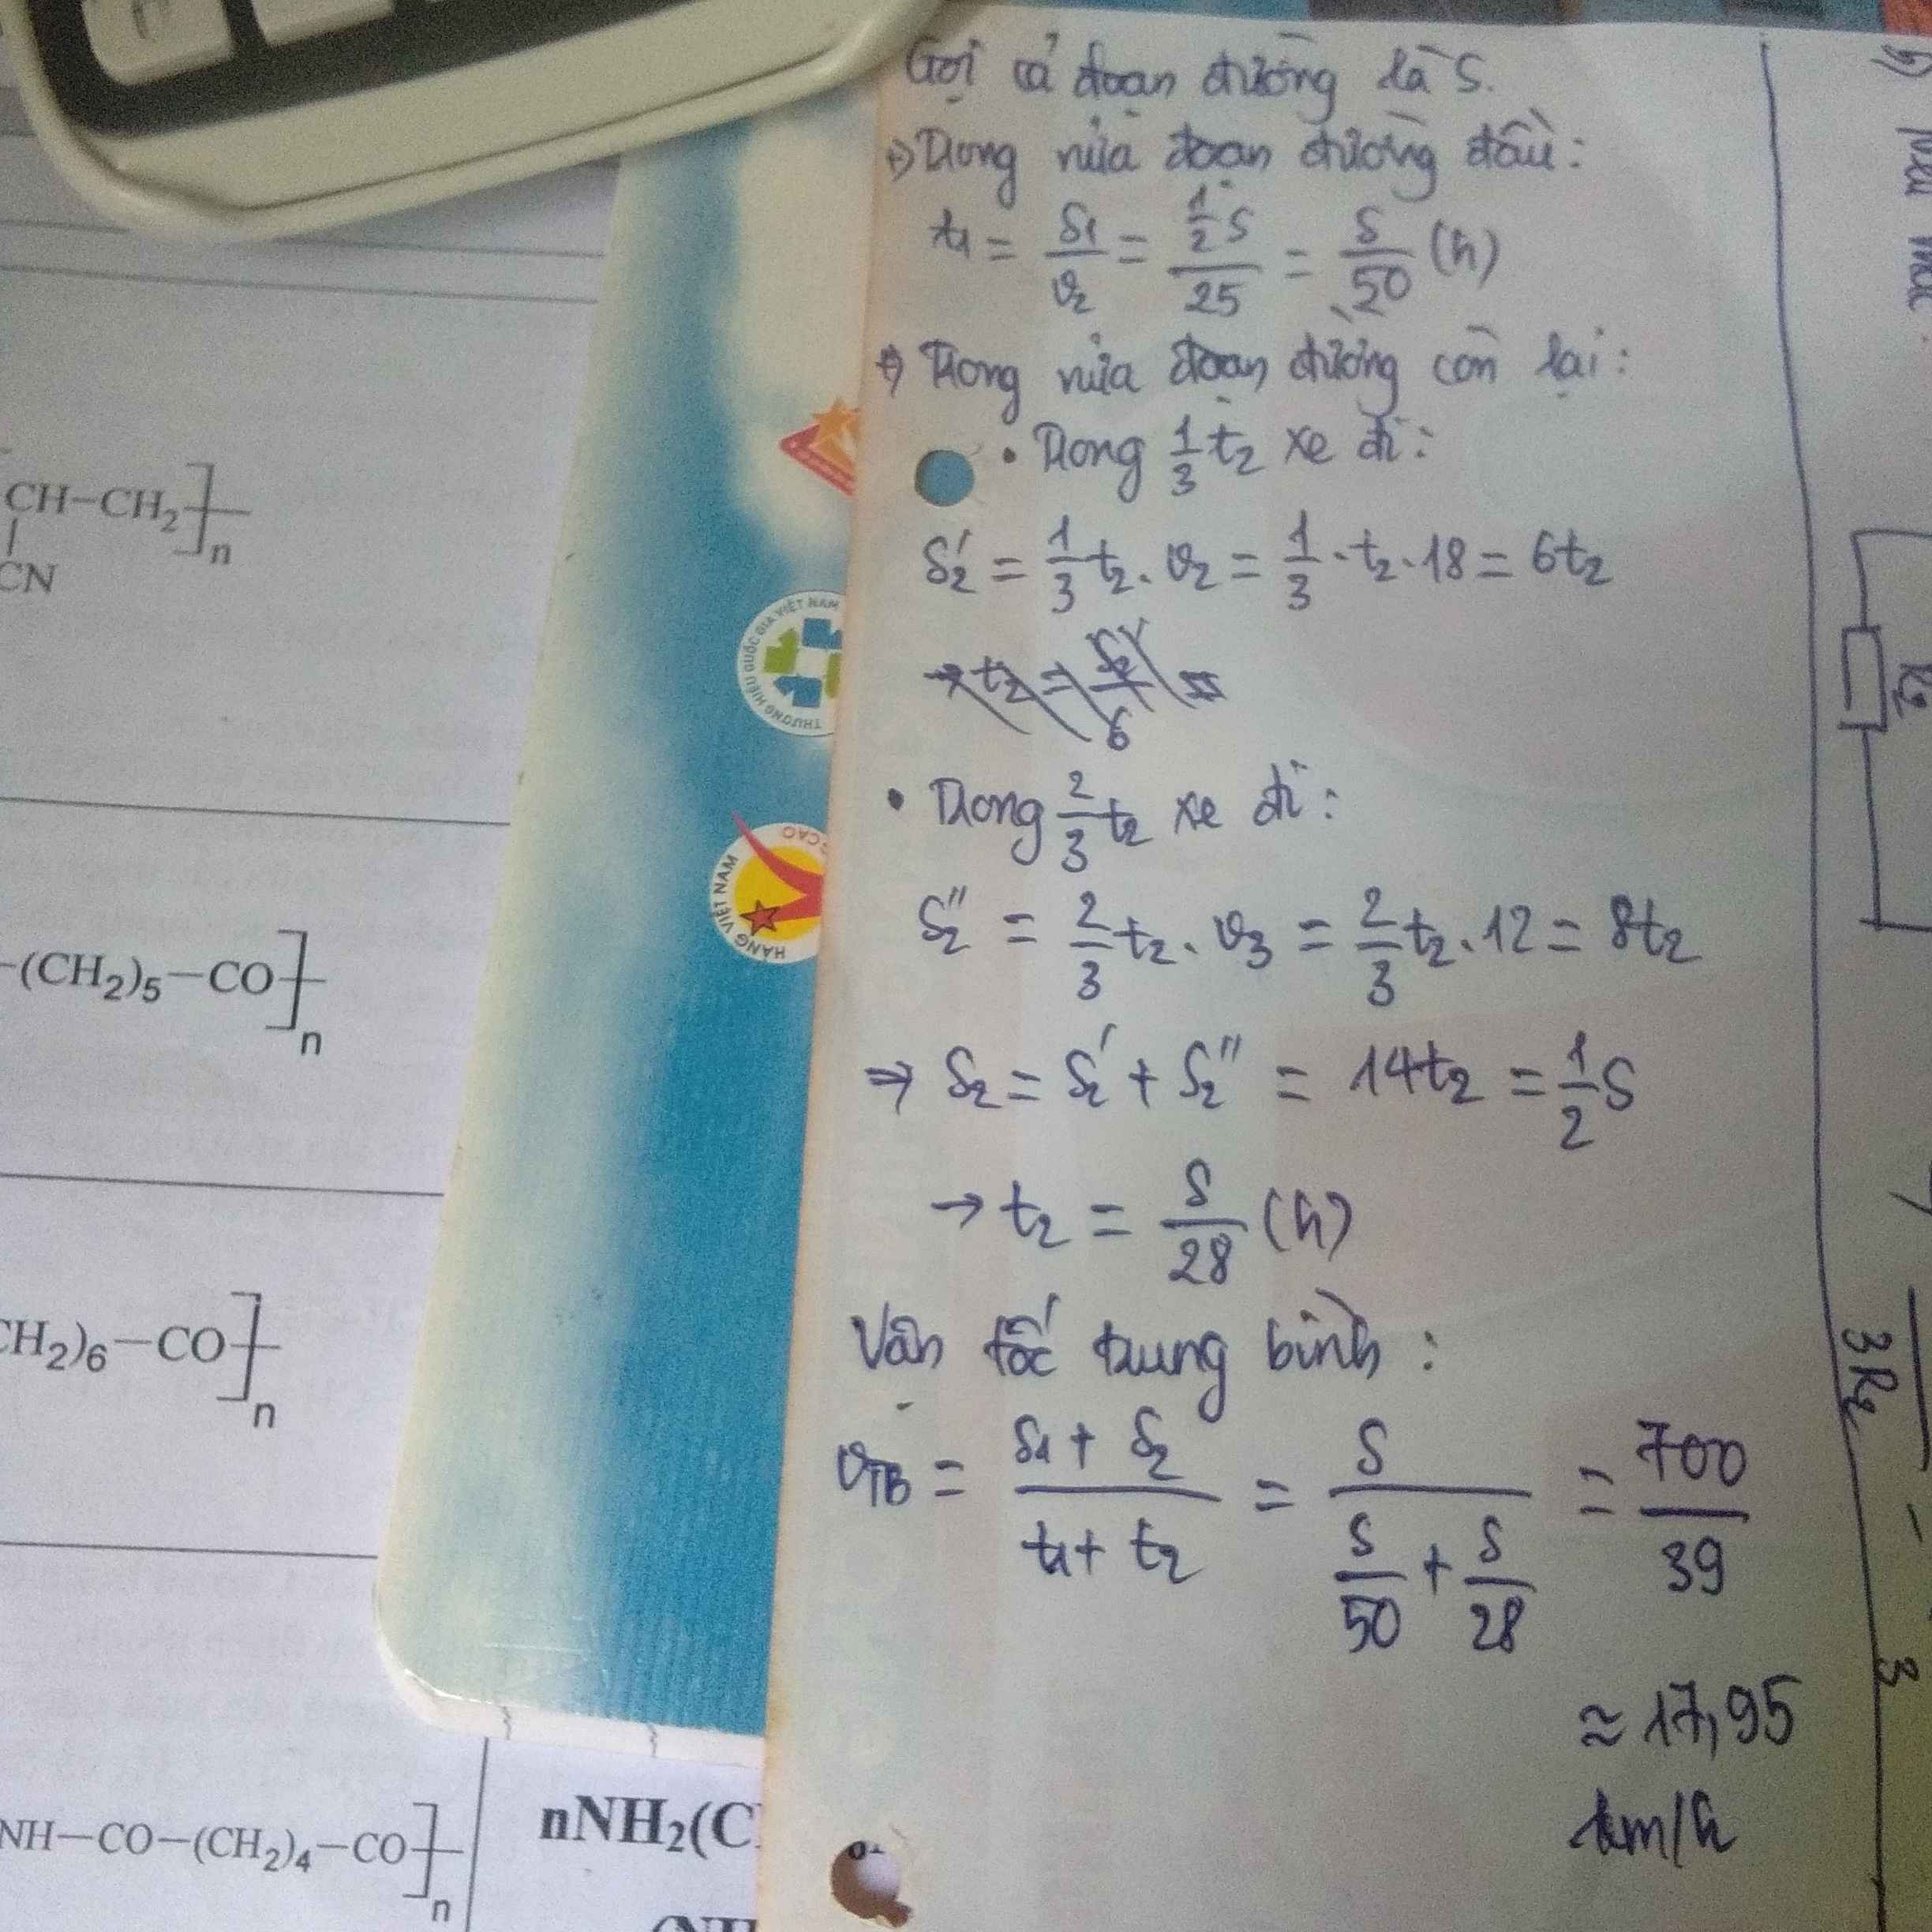 Gọi cả đoạn đường là S.
+) Trong nửa đoạn đường đầu:
t1 = S1/v2 = (1/2 S)/25 = S/50 (h)
+) Trong nửa đoạn đường còn lại:
• Trong 1/3 t2 xe đi:
S2' = 1/3 t2 . v2 = 1/3 . t2 . 18 = 6t2
• Trong 2/3 t2 xe đi:
S2'' = 2/3 t2 . v3 = 2/3 t2 . 12 = 8t2
⇒ S2 = S2' + S2'' = 14t2 = 1/2 S
→ t2 = S/28 (h)
Vận tốc trung bình :
vTB = (S1 + S2)/(t1 + t2) = S/(S/50 + S/28) = 700/39
≈ 17,95
km/h
CH–CH2]n
CN
–(CH2)5–CO]n
CH2)6–CO]n
NH–CO–(CH2)4–CO]n
nNH2(C
THƯƠNG HIỆU QUỐC GIA VIỆT NAM
HÀNG VIỆT NAM
CAO
R2
3R2
3